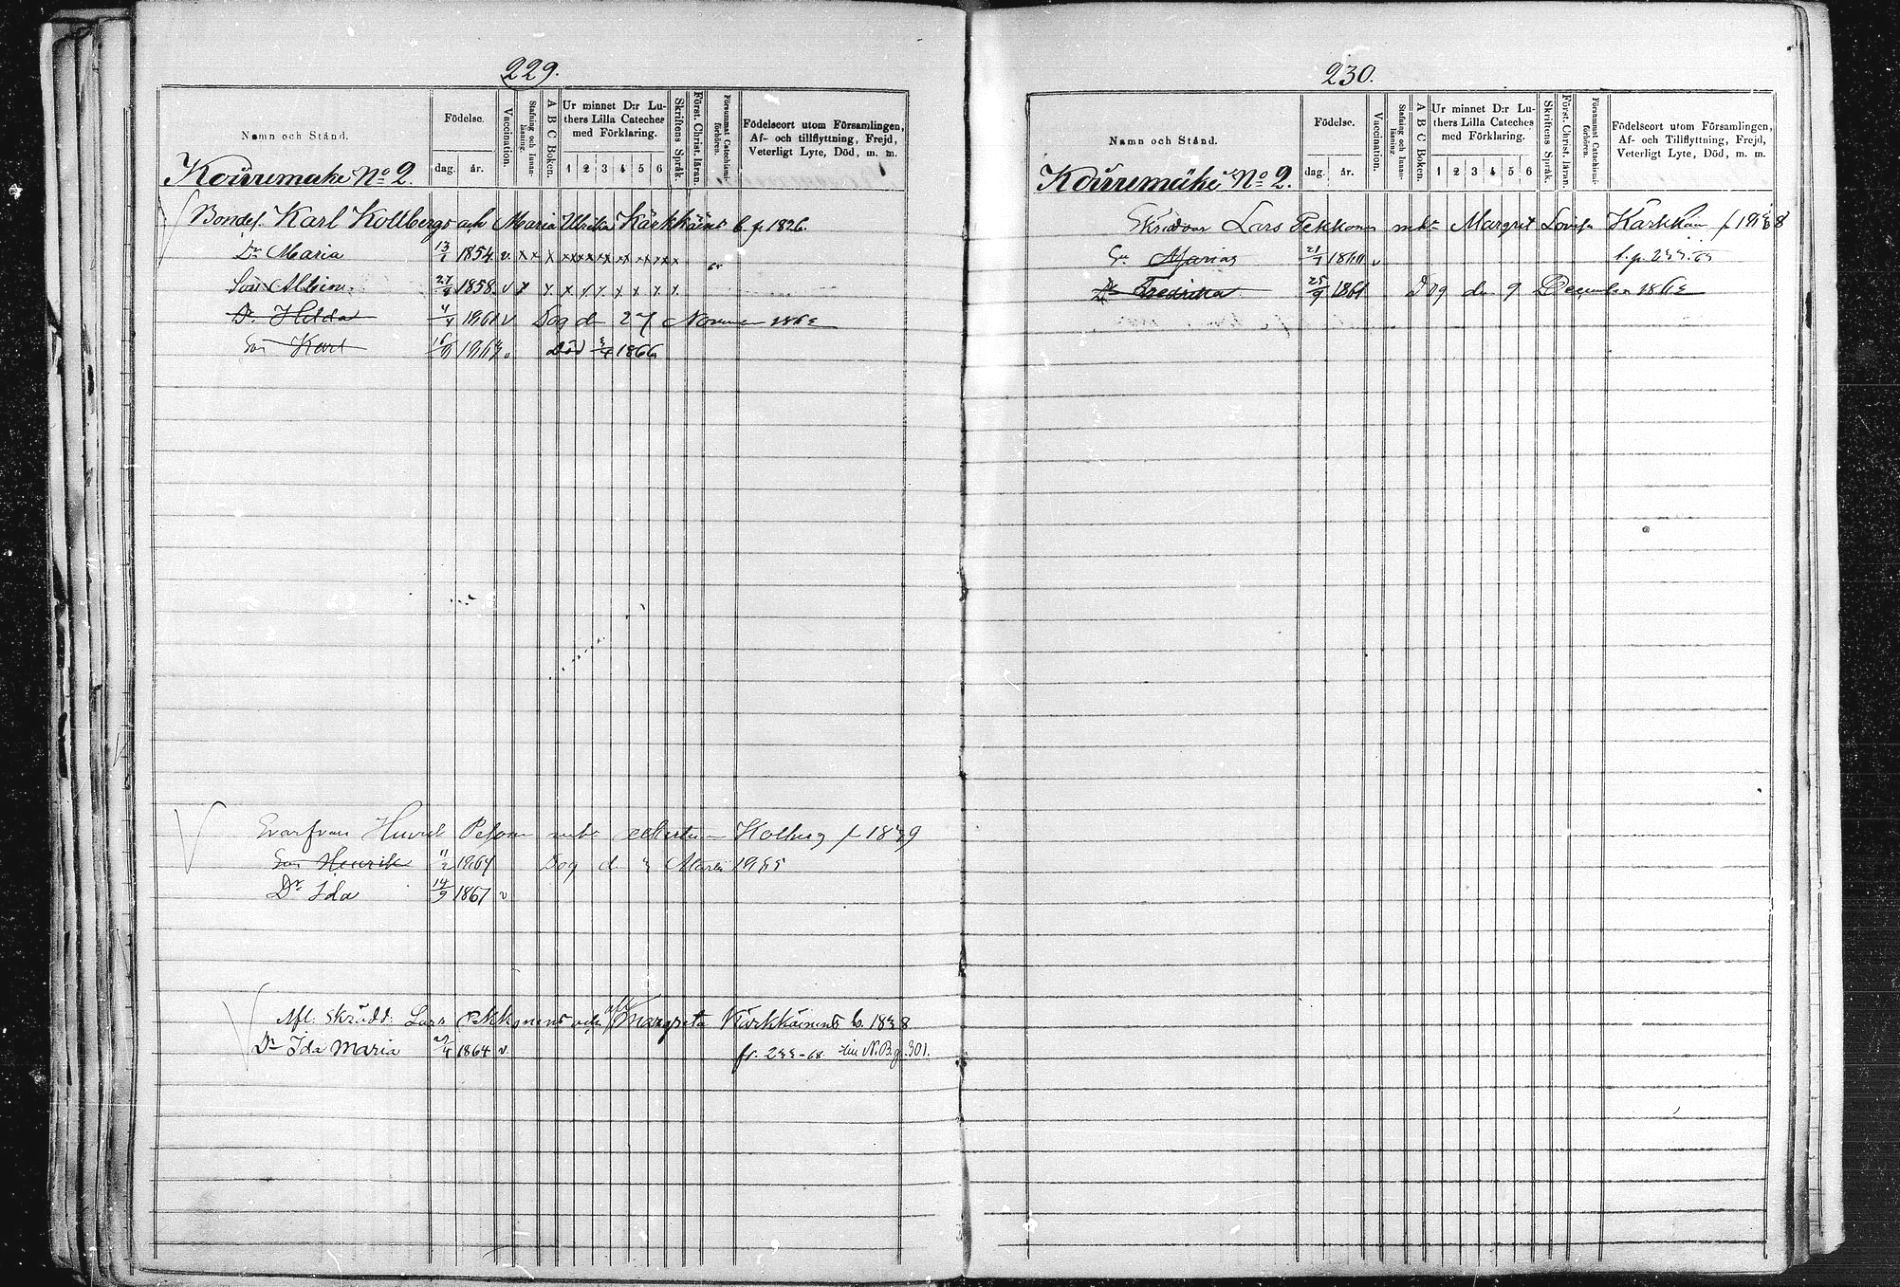 229.
Namn och Stånd.
Födelse.
dag. år.
Vaccination
Stafning och Innanläsning.
A B C Boken.
Ur minnet D:r Luthers Lilla Cateches med Förklaring.
1 2 3 4 5 6
Skriftens Språk.
Först. Christ. läran.
Försummat Catechismiförhören.
Födelseort utom Församlingen,
Af- och tillflyttning, Frejd,
Veterligt Lyte, Död, m. m.
Kouremäke No 2.
Bondes. Karl Kollbergs och Maria Ulrika Kärkkäines b. f. 1826.
Dr Maria 13/1 1854 v. x x x x x x x x x x x
Son Albin 27/4 1858 v x x x x x x x x
Dr. Hilda 1861 v Dog d 27 Novem 186
Son Karl 186 Död 1866
Henrik Peson Kolberg f 1839
Son Henrik 11/2 1864 Dog d Mars
Dr Ida 14/9 1867 v
Afl. Skrädd. Lars Pekkonens och Margreta Kärkkäinens b. 1838
Dr Ida Maria 1864 v. fr. 233-68 N.B.p. 301.
230.
Namn och Stånd.
Födelse.
dag. år.
Vaccination.
Stafning och Innanläsning
A B C Boken.
Ur minnet D:r Luthers Lilla Cateches med Förklaring.
1 2 3 4 5 6
Skriftens Språk.
Först. Christ. läran.
Försummat Catechismiförhören.
Födelseort utom Församlingen,
Af- och Tillflyttning, Frejd,
Veterligt Lyte, Död, m. m.
Kouremäke No 2.
Lars Pekkones Margret Lovisa Kärkkäin f 1838
Marias 21/7 v
Dr Fredrika 25/9 1861 Dog den 9 December 186